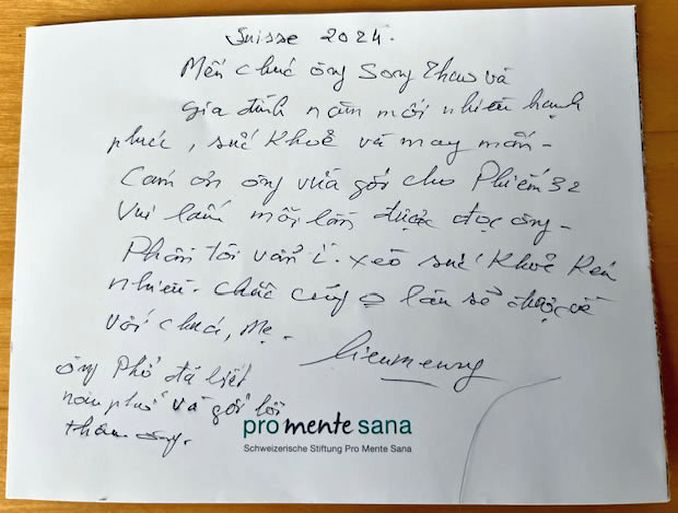 Suisse 2024.
Mến chúc ông Song Thao và
gia đình năm mới nhiều hạnh
phúc, sức khoẻ và may mắn -
Cám ơn ông vừa gởi cho Phiếm 32
Vui lắm mỗi lần được đọc ông -
Phần tôi vẫn ì-xèo sức khoẻ kém
nhiều - chắc cũng o lâu sẽ được về
với chúa, Mẹ.
ông Phố đã biết
và gởi lời
thăm ông.
pro mente sana
Schweizerische Stiftung Pro Mente Sana